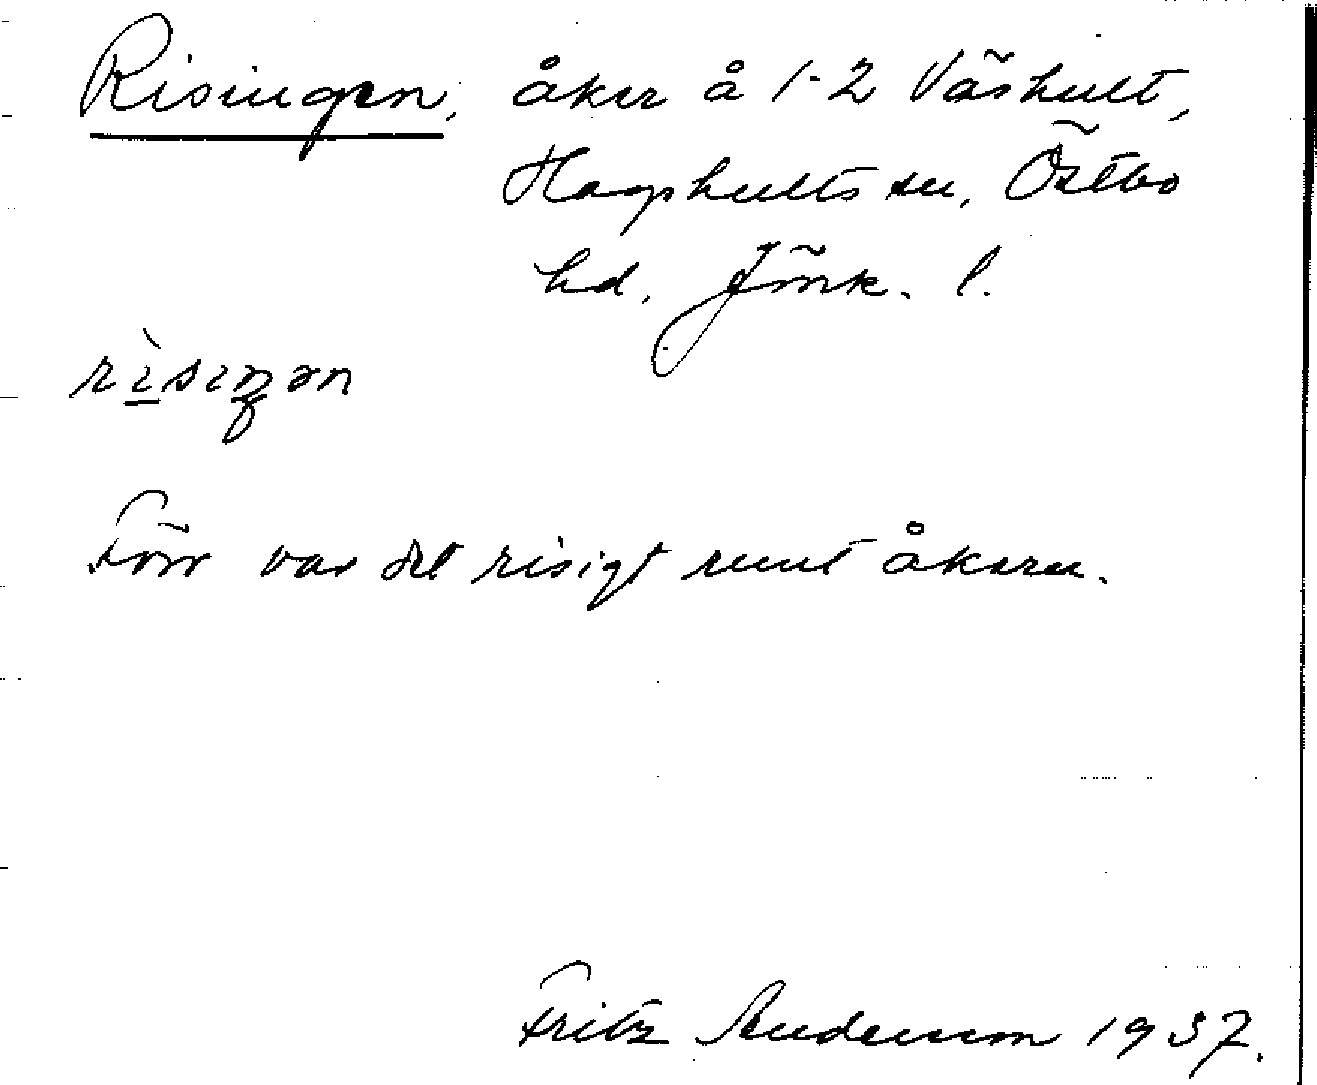 Risingen, åker å 1-2 Väshult,
Hagshults sn, Östbo
hd, Jönk. l.
rìsiŋən
Förr var det risigt runt åkern.
Fritz Andersson 1937.